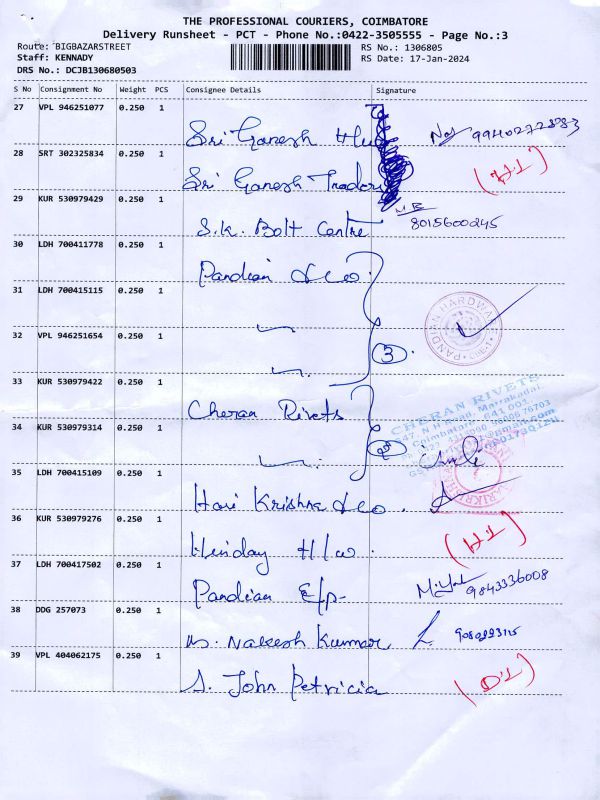 THE PROFESSIONAL COURIERS, COIMBATORE
Delivery Runsheet - PCT - Phone No.:0422-3505555 - Page No.:3
Route: BIGBAZARSTREET
RS No.: 1306805
Staff: KENNADY
RS Date: 17-Jan-2024
DRS No.: DCJB130680503
S No Consignment No Weight PCS Consignee Details Signature
27 VPL 946251077 0.250 1
Sri Ganesh 9940272883
28 SRT 302325834 0.250 1
Sri Ganesh Traders (H1)
29 KUR 530979429 0.250 1
S.K. Bolt Centre 8015600245
30 LDH 700411778 0.250 1
Pandian
31 LDH 700415115 0.250 1
32 VPL 946251654 0.250 1
3
33 KUR 530979422 0.250 1
Cheran Rivets
CHERAN RIVETS
34 KUR 530979314 0.250 1
35 LDH 700415109 0.250 1
Hari Krishna
36 KUR 530979276 0.250 1
H/w. (H1)
37 LDH 700417502 0.250 1
Pandian 9843336008
38 DDG 257073 0.250 1
Kumar
39 VPL 404062175 0.250 1
S. John Petricia (D1)